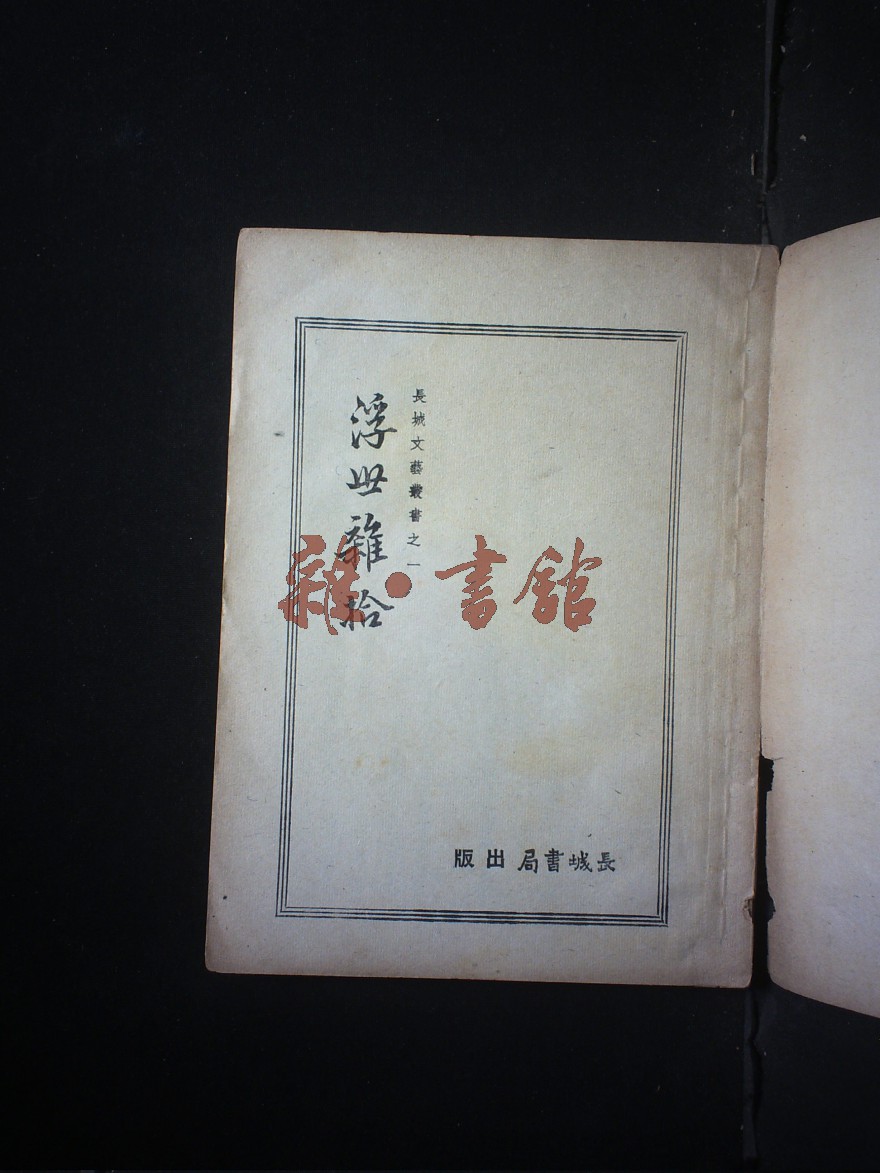 長城文藝叢書之一
浮世雜拾
雜•書館
長城書局出版